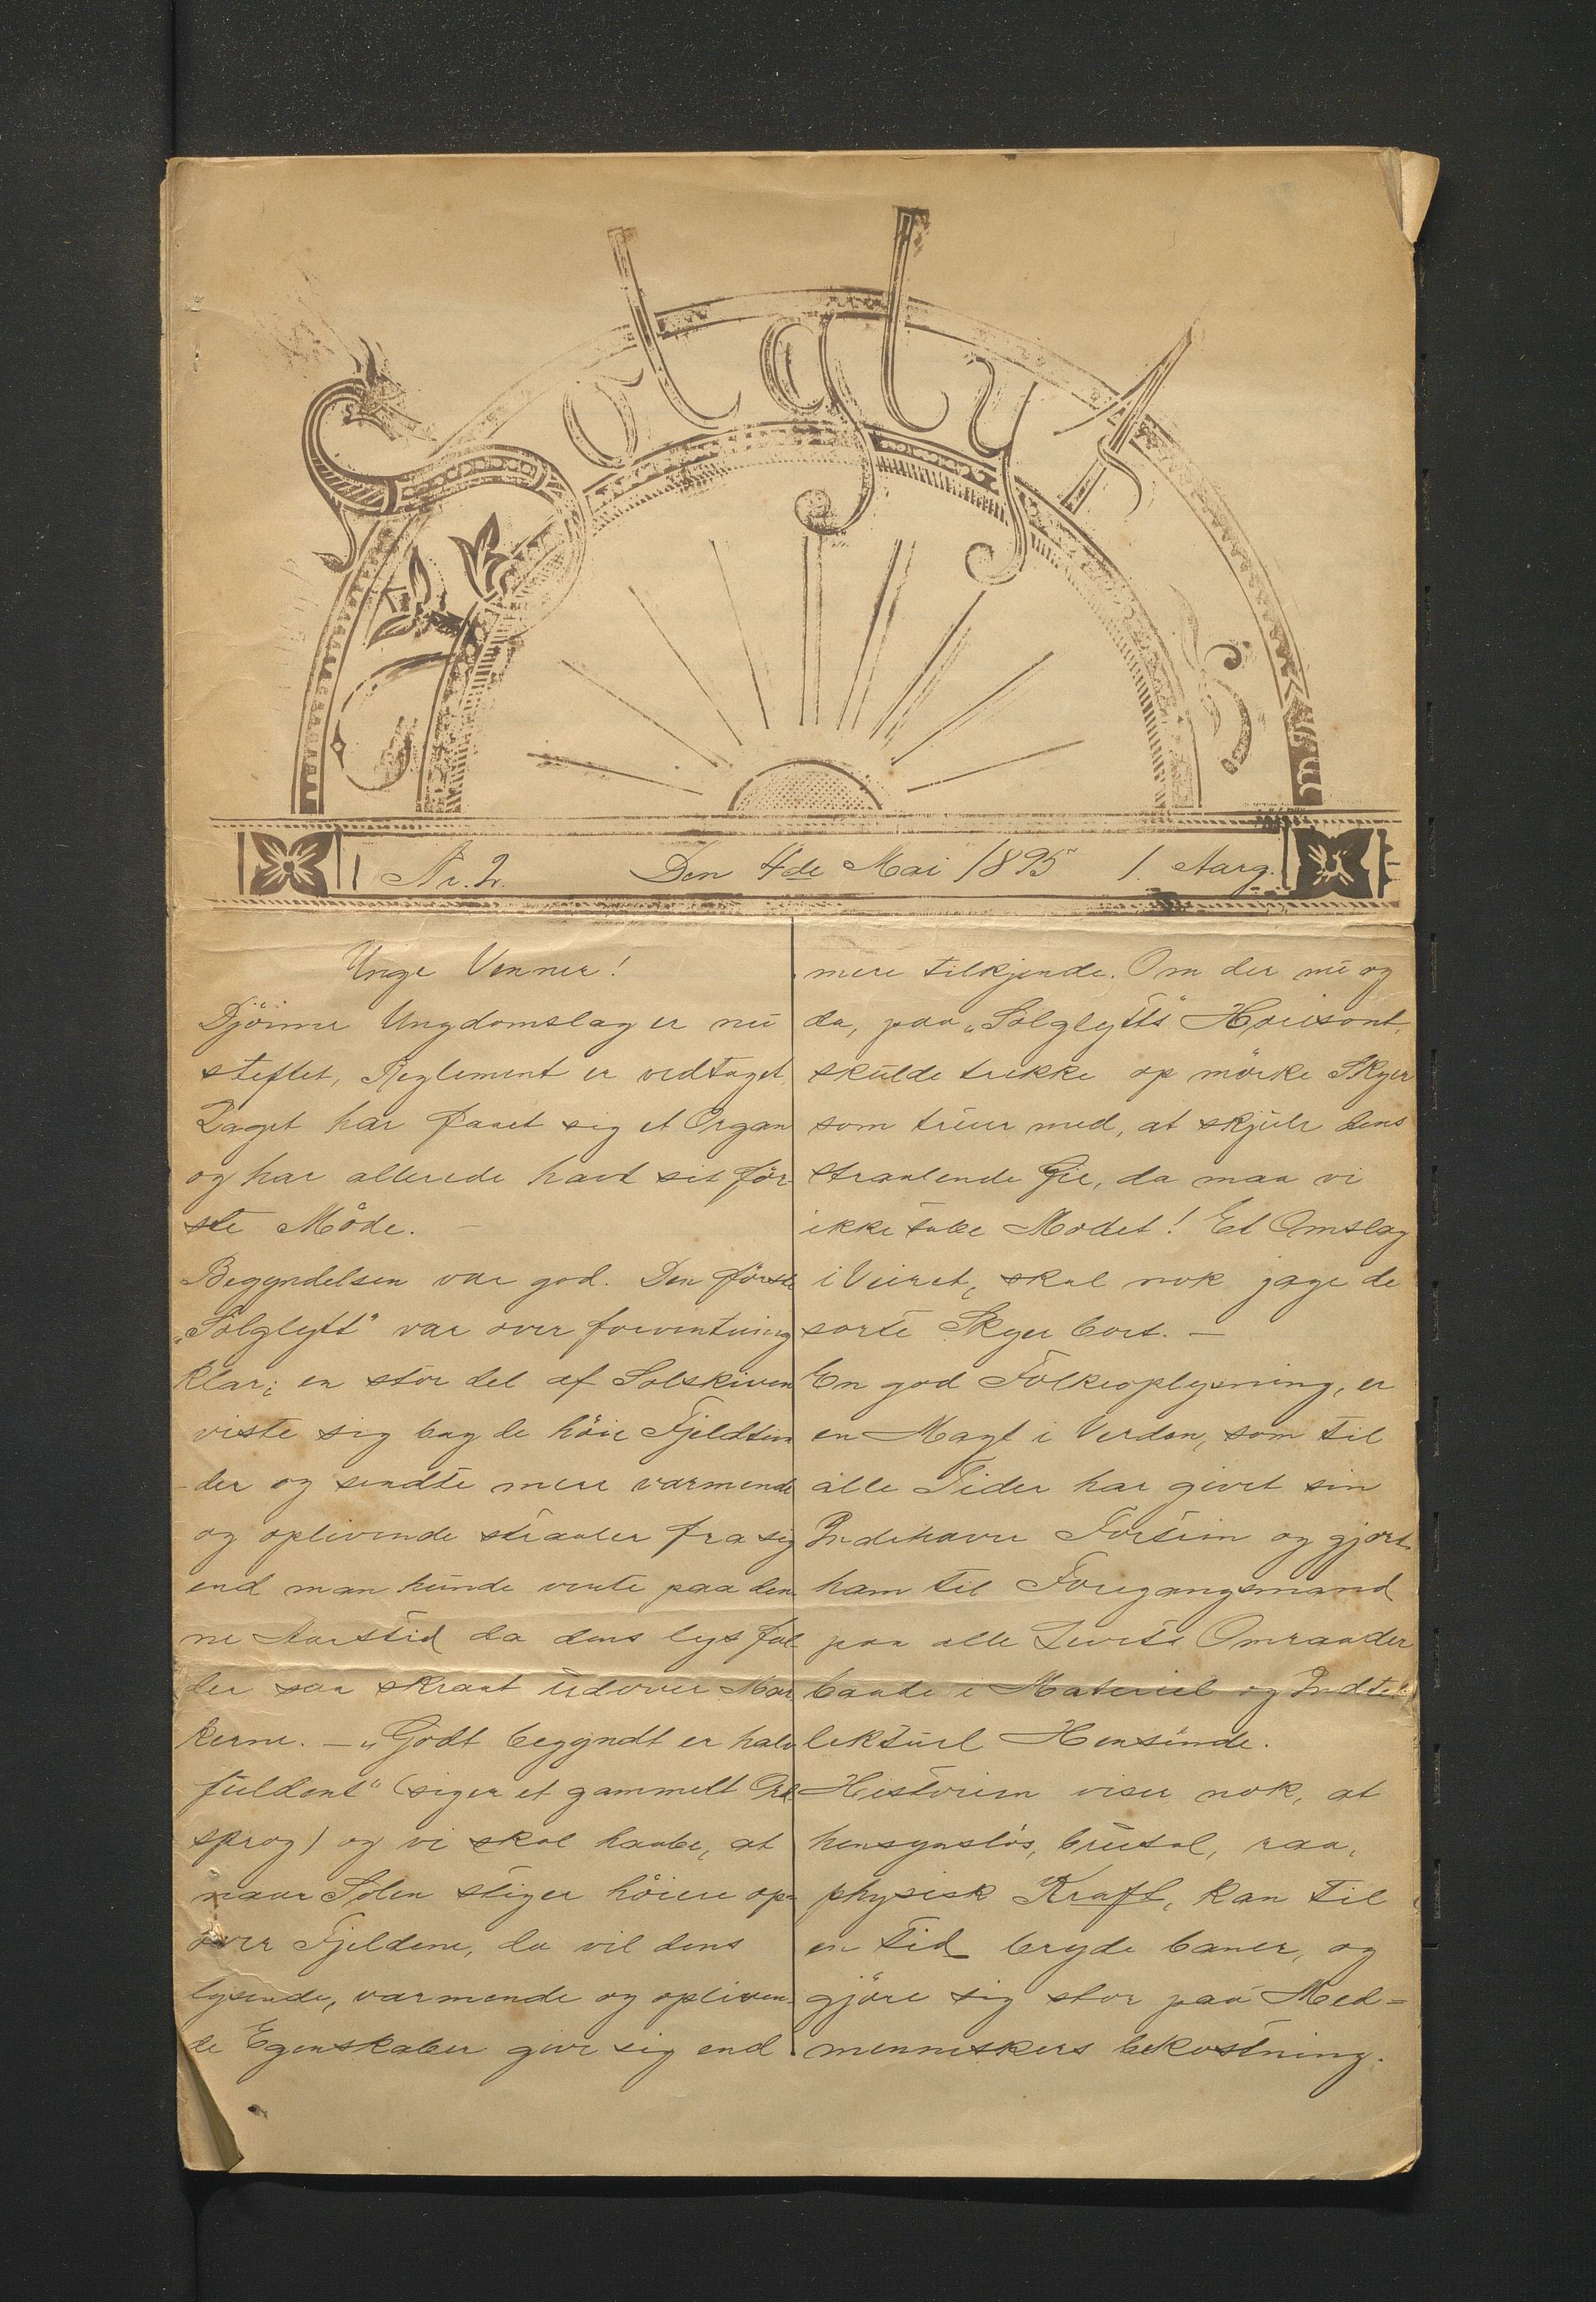 Solglytt
Nr. 2. Den 4de Mai 1895 1. Aarg.
Unge Venner!
Djönne Ungdomslag er nu
steftet, Reglement er vedtaget
Laget har faaet sig et Organ
og har allerede havt sit för-
ste Möde. —
Begyndelsen var god. Den förste
„Solglytt" var over forventning
klar; en stor del af Solskiven
viste sig bag de höie Fjeldtin
-der og sendte mere varmende
og oplivende straaler fra sig
end man kunde vente paa den-
ne Aarstid da dens lys fal-
der saa skraat udover Mar
kerne. — „Godt begyndt er halv
fuldent" (siger et gammelt Ord
sprog) og vi skal haabe, at
naar Solen stiger höiere op
over Fjeldene, da vil dens
lysende, varmende og opliven-
de Egenskaber give sig end
mere tilkjende. Om der nu og
da, paa „Solglytts" Horisont,
skulde trekke op mörke Skyer
som truer med, at skjule dens
straalende Öie, da maa vi
ikke tabe Modet! Et Omslag
i Veiret, skal nok jage de
sorte Skyer bort. —
En god Folkeoplysning, er
en Magt i Verden, som til
alle Tider har givet sin
Indehaver Fortrin og gjort
ham til Foregangsmand
paa alle Livets Omraader
baade i Materiel og Indtel
lektuel Hensende.
Historien viser nok, at
hensynslös, brutal, raa,
physisk Kraft, kan til
en tid bryde baner, og
gjöre sig stor paa Med=
menneskers bekostning.